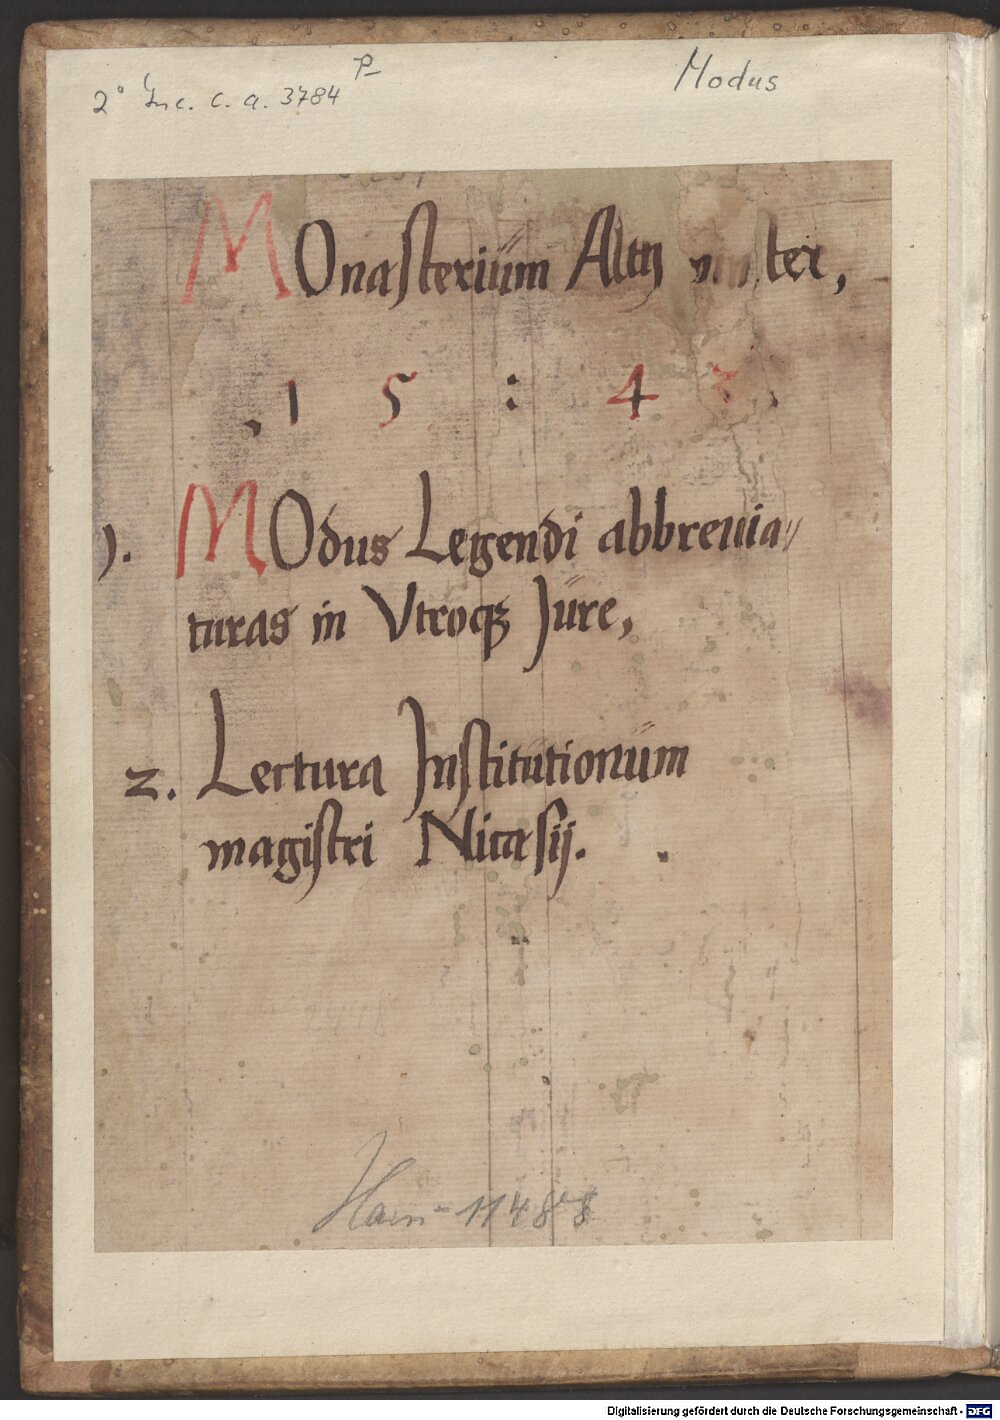 2° Inc. c. a. 3784
P
Modus
MOnasteriüm Altij ter,
.1 5 : 4 2.
1. MOdus Legendi abbreuia〃
turas in Vtroqꝫ Jüre,
2. Lectura Institütioniüm
magistri Nicasij.
Hain 11488
Digitalisierung gefördert durch die Deutsche Forschungsgemeinschaft - DFG